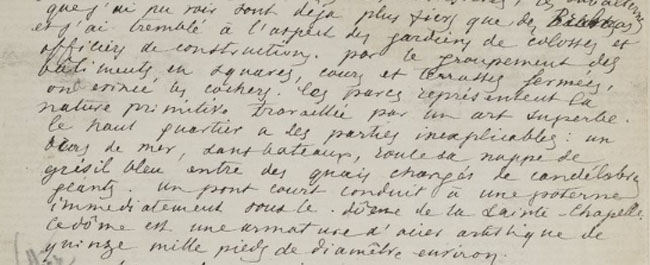 que j'ai pu voir sont déjà plus fiers que des
et j'ai tremblé à l'aspect des gardiens de colosses et
officiers de constructions. par le groupement des
bâtiments, en squares, cours et terrasses fermées,
on a évincé les cochers. les parcs représentent la
nature primitive travaillée par un art superbe.
le haut quartier a des parties inexplicables : un
bras de mer, sans bateaux, roule sa nappe de
grésil bleu entre des quais chargés de candélabres
géants. un pont court conduit à une poterne
immédiatement sous le dôme de la Sainte-Chapelle.
ce dôme est une armature d'acier artistique de
quinze mille pieds de diamètre environ.